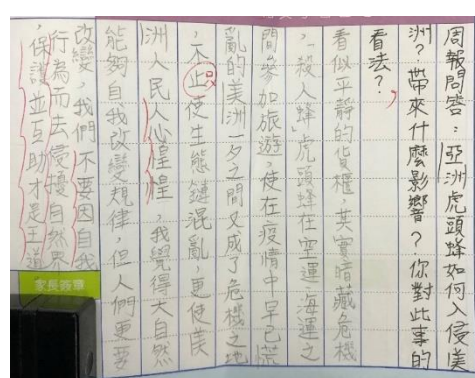 周報問答：亞洲虎頭蜂如何入侵美
洲？帶來什麼影響？你對此事的
看法？
看似平靜的貨櫃，其實暗藏危機
，「殺人蜂」虎頭蜂在空運、海運之
間參加旅遊，使在疫情中早已慌
亂的美洲一夕之間又成了危機之地
，不止使生態鏈混亂，更使美
只
洲人民人心惶惶，我覺得大自然
能夠自我改變規律，但人們更要
改變，我們不要因自我
行為而去侵擾自然界
，保護並互助才是王道
家長簽章